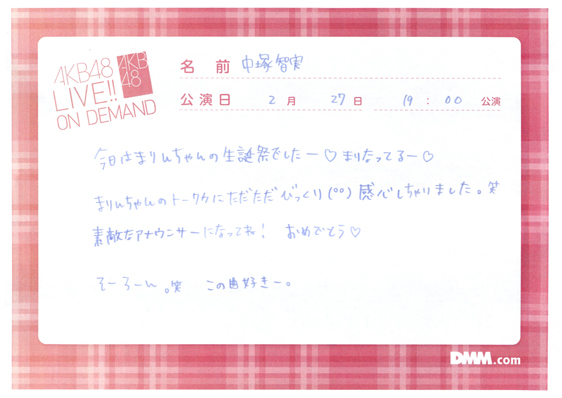 AKB48
LIVE!!
ON DEMAND
AKB
48
名前 中塚智実
公演日 2月 27日 19:00 公演
今日はまりんちゃんの生誕祭でしたー♡まりなってるー♡
まりんちゃんのトーク力にただただびっくり(°°)感心しちゃいました。笑
素敵なアナウンサーになってね! おめでとう♡
そーろーん。笑 この曲好きー。
DMM.com